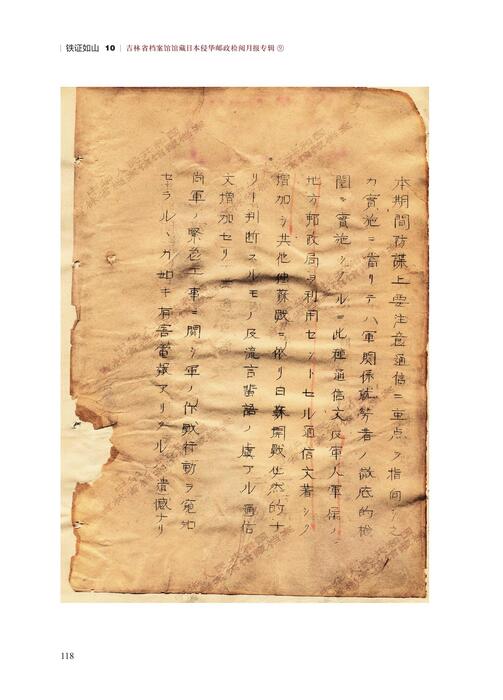 铁证如山 10 吉林省档案馆馆藏日本侵华邮政检阅月报专辑⑨
本期間防諜上要注意通信ニ重点ヲ指向シ之
カ実施ニ当リテハ軍関係就労者ノ徹底的検
閲ヲ実施シタルニ此種通信文及軍人軍属ノ
地方郵政局ヲ利用セントセル通信文著シク
増加シ其他独蘇戦ニ依リ日蘇開戦必然的ナ
リト判断スルモノ及流言蜚語ノ虞アル通信
文増加セリ
尚軍ノ緊急工事ニ関シ軍ノ作戦行動ヲ窺知
セラルヽカ如キ有害電報アリタルハ遺憾ナリ
118